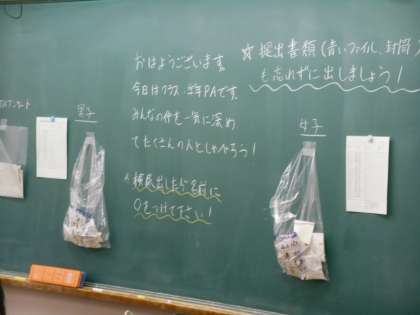 アンケート
男子
おはようございます。
今日はクラス・学年PAです。
みんなの仲を一気に深め
てたくさんの人としゃべろう!
検尿出したら名前に
○をつけて下さい!
☆提出書類(青いファイル、封筒)
も忘れずに出しましょう!
女子